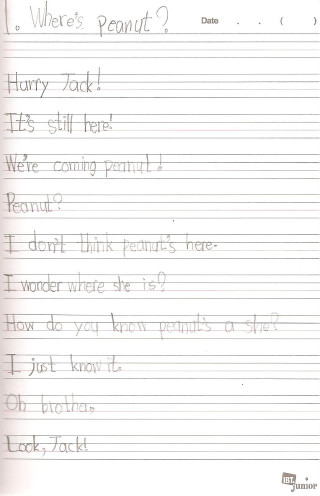 1. Where's peanut?
Date . . ( )
Hurry Jack!
It's still here!
We're coming peanut!
Peanut?
I don't think peanut's here.
I wonder where she is?
How do you know peanut's a she?
I just know it.
Oh brother,
Look, Jack!
IBT junior